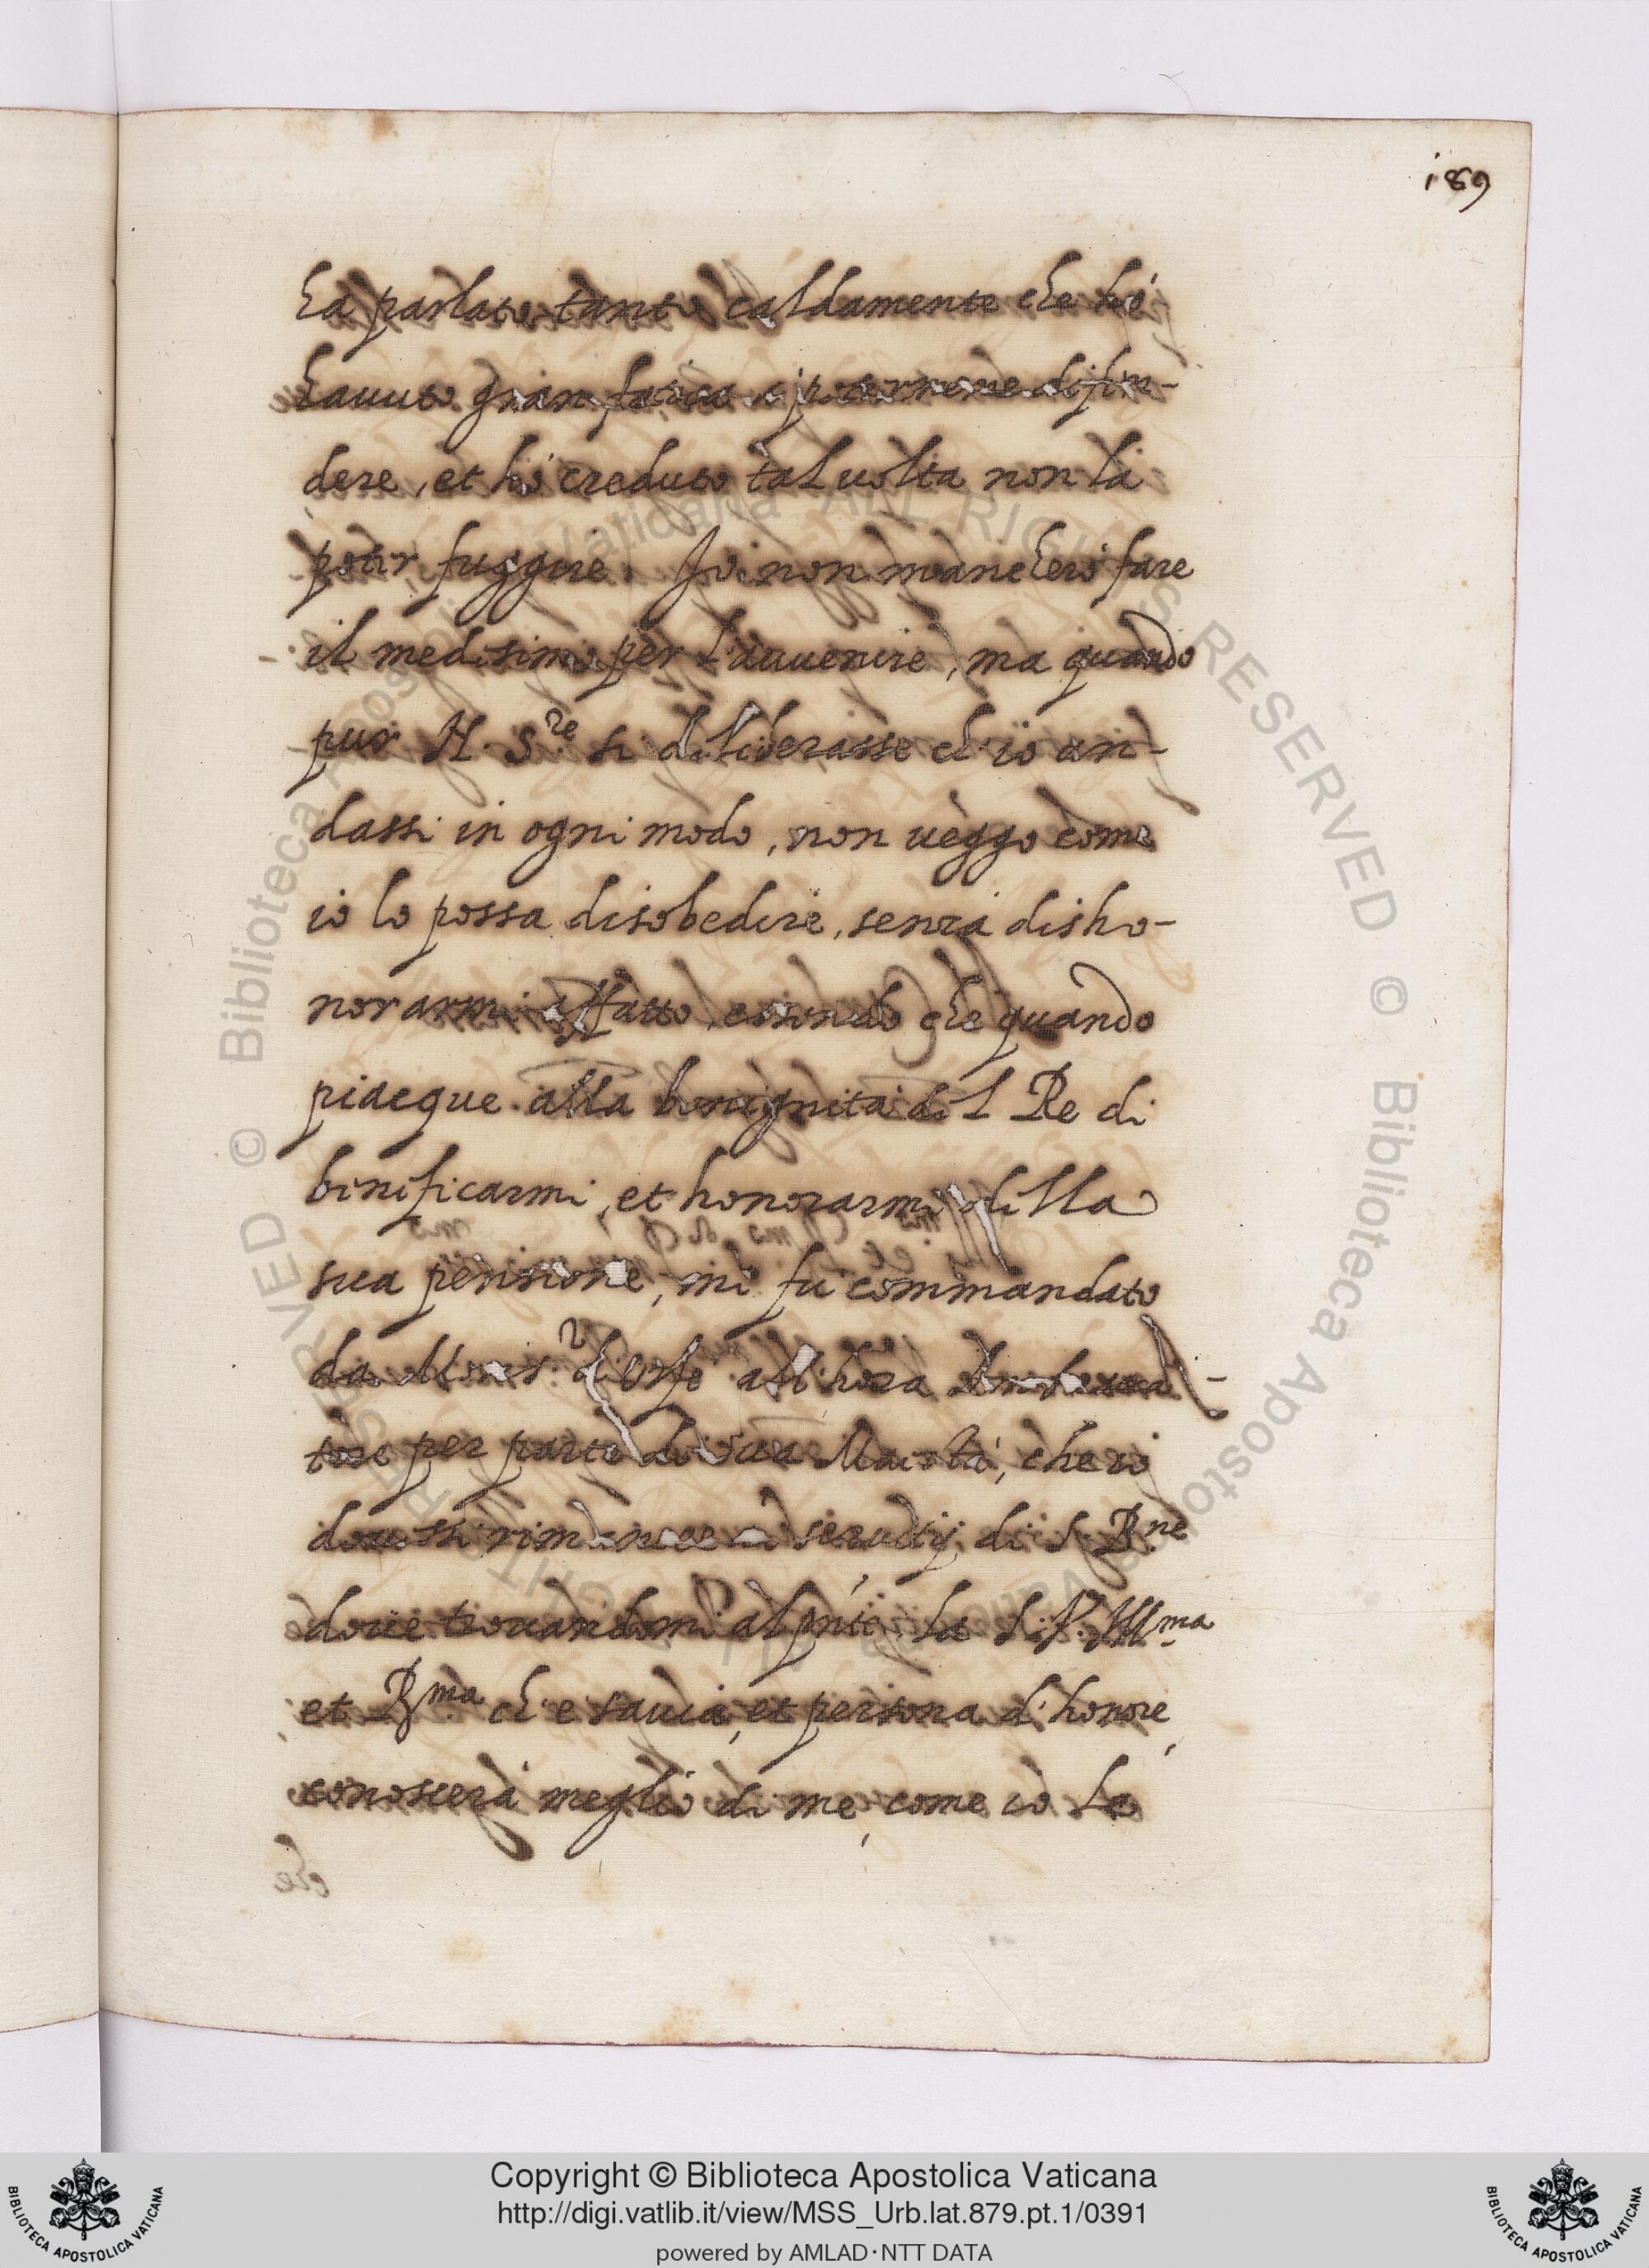 189
ha parlato tanto caldamente che hò
hauuto gran fatica à potermene difen-
dere, et hò creduto tal uolta non la
poter fuggire. Io non mancherò fare
il medesimo per l'auuenire, ma quando
pur N. S.re si deliberasse ch'io an-
dassi in ogni modo, non ueggo come
io lo possa disobedire, senza disho-
norarmi affatto, essendo che quando
piacque alla benignità del Re di
beneficarmi, et honorarmi della
sua pensione, mi fu commandato
da Mons.r all'hora Ambascia-
tore per parte di sua Maestà, che io
douessi rimanere à seruitij di S. B.ne
doue trouandomi al pnte, la S. V. Ill.ma
et R.ma ch'e sauia, et persona d'honore,
conoscerà meglio di me, come io la
che
Copyright © Biblioteca Apostolica Vaticana
http://digi.vatlib.it/view/MSS_Urb.lat.879.pt.1/0391
powered by AMLAD·NTT DATA
BIBLIOTECA APOSTOLICA VATICANA
BIBLIOTECA APOSTOLICA VATICANA
© Biblioteca Apostolica Vaticana ALL RIGHTS RESERVED © Biblioteca Apostolica Vaticana ALL RIGHTS RESERVED